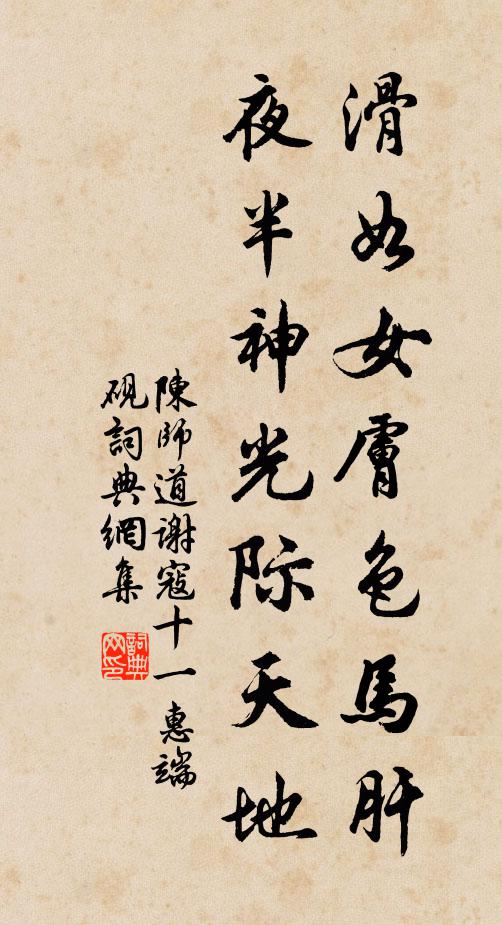 滑如女膚色馬肝
夜半神光际天地
陳師道謝寇十一惠端
硯詞典網集
詞典
网印